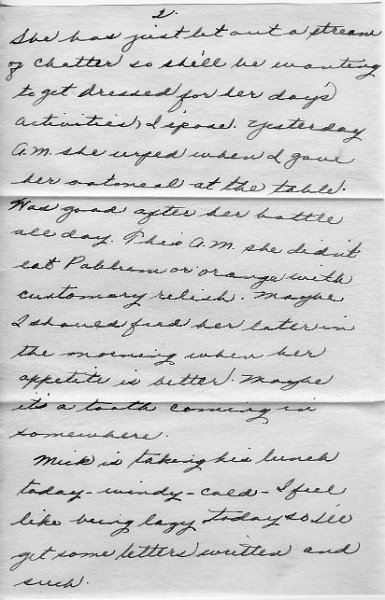 2.
She has just let out a stream
of chatter so she'll be wanting
to get dressed for her day's
activities, I spose. Yesterday
A.M. she urped when I gave
her oatmeal at the table.
Was good after her bottle
all day. This A.M. she didn't
eat Pablum or orange with
customary relish. Maybe
I should feed her later in
the morning when her
appetite is better. Maybe
it's a tooth coming in
somewhere.
Mick is taking his lunch
today - windy - cold - I feel
like being lazy today so I'll
get some letters written and
such.